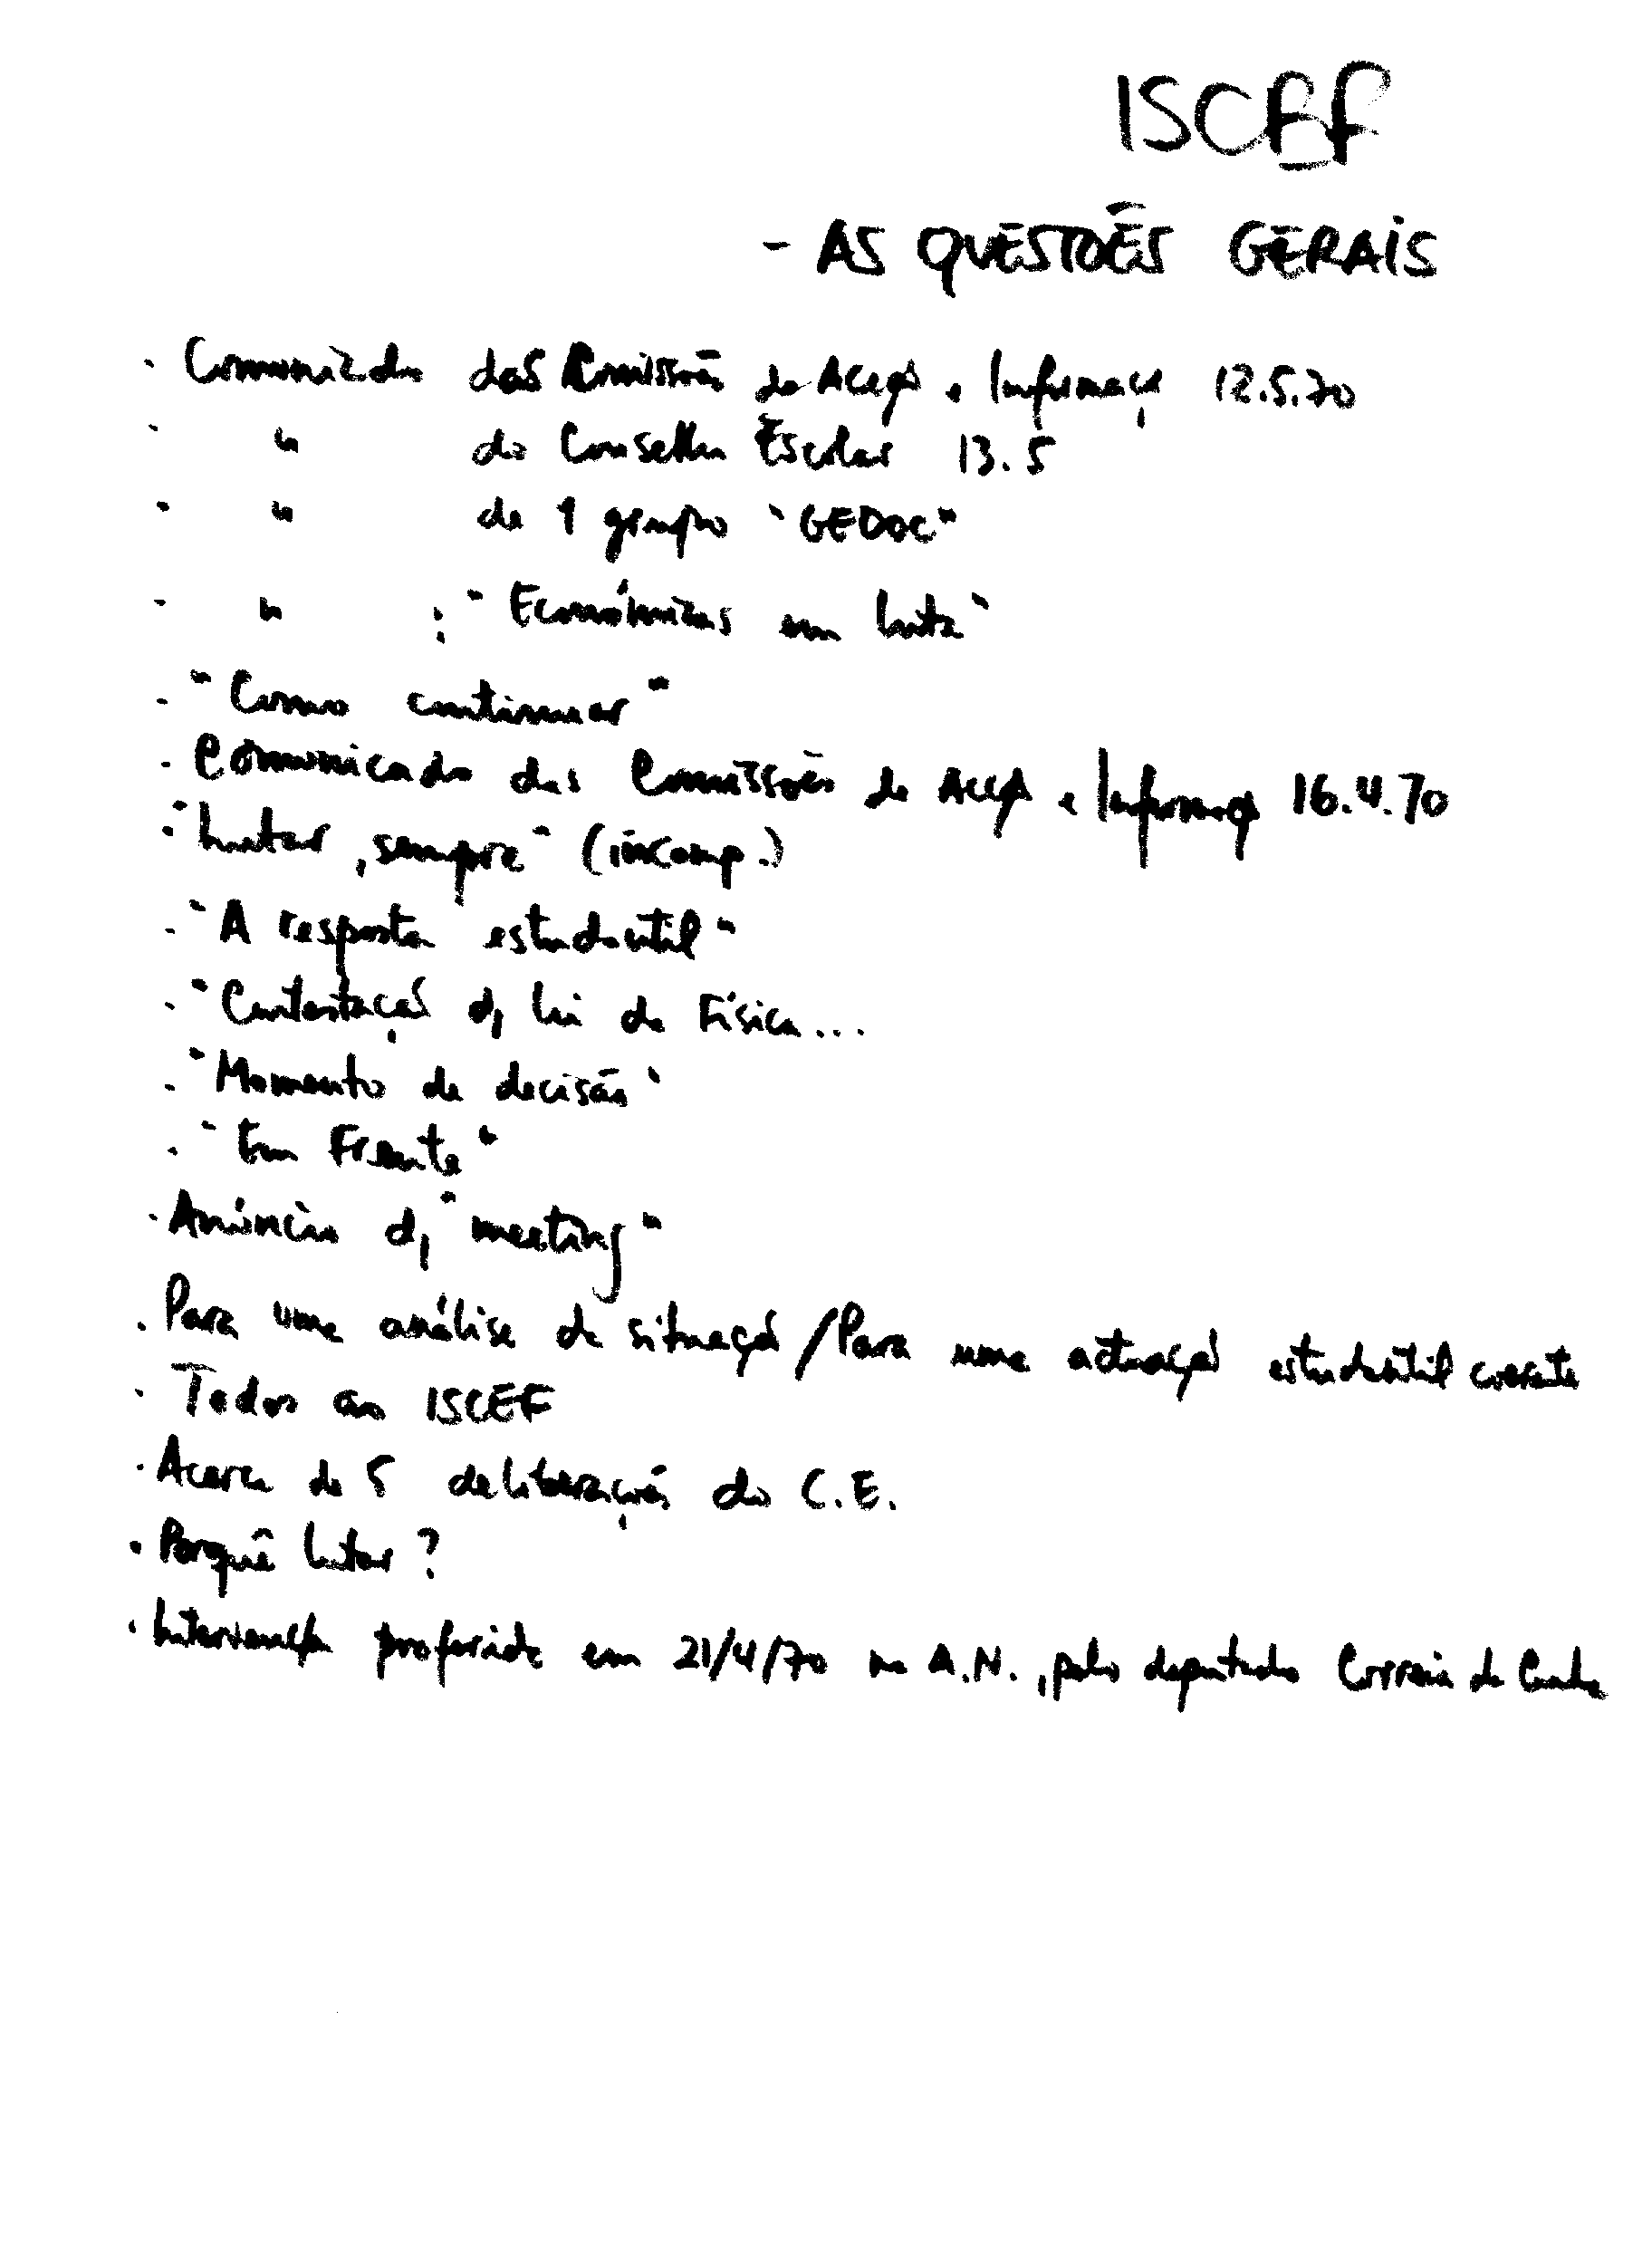 ISCEF
- AS QUESTÕES GERAIS
. Comunicado das Comissões de Acção e Informação 12.5.70
. " do Conselho Escolar 13.5
. " de 1 grupo "GEDOC"
. " : "Económicas em luta"
. "Como continuar"
. Comunicado das Comissões de Acção e Informação 16.4.70
. "Lutar, sempre" (incomp.)
. "A resposta estudantil"
. "Contestação d, lei de Física...
. "Momento de decisão"
. "Em Frente"
. Anúncio d, "meeting"
. Para uma análise da situação / Para uma actuação estudantil coerente
. Todos ao ISCEF
. Acerca de 5 deliberações do C.E.
. Porquê lutar?
. Intervenção proferida em 21/4/70 na A.N., pelo deputado Correia da Cunha